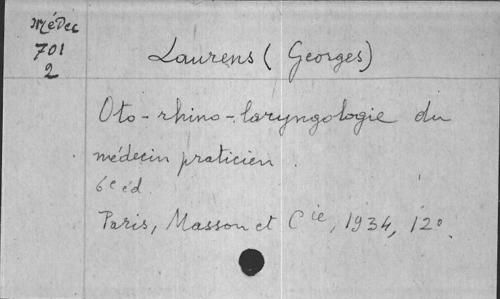 Médec
701
2
Laurens (Georges)
Oto-rhino-laryngologie du
médecin praticien.
6e éd.
Paris, Masson et Cie, 1934, 12°.